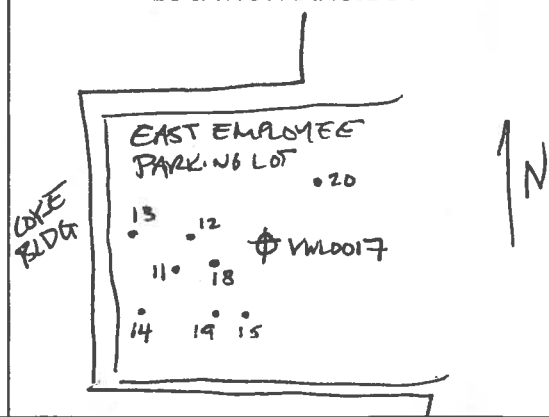 EAST EMPLOYEE
PARKING LOT
20
N
13
12
COKE
BLDG
VWL0017
11
18
14
19
15